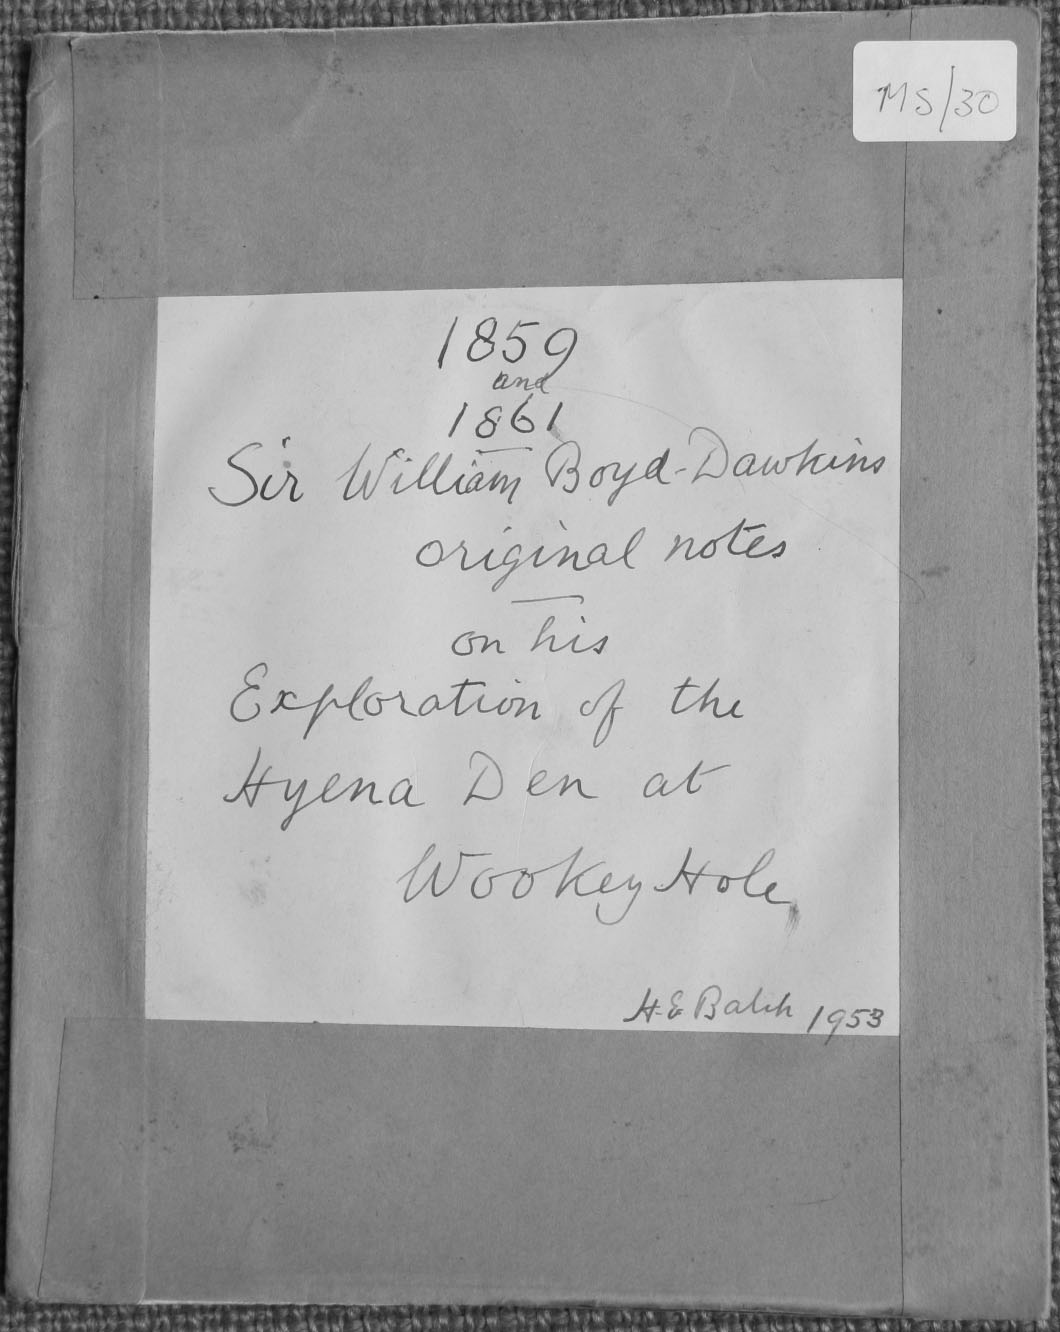 MS/30
1859
and
1861
Sir William Boyd-Dawkins
original notes
on his
Exploration of the
Hyena Den at
Wookey Hole
H.E Balch 1953